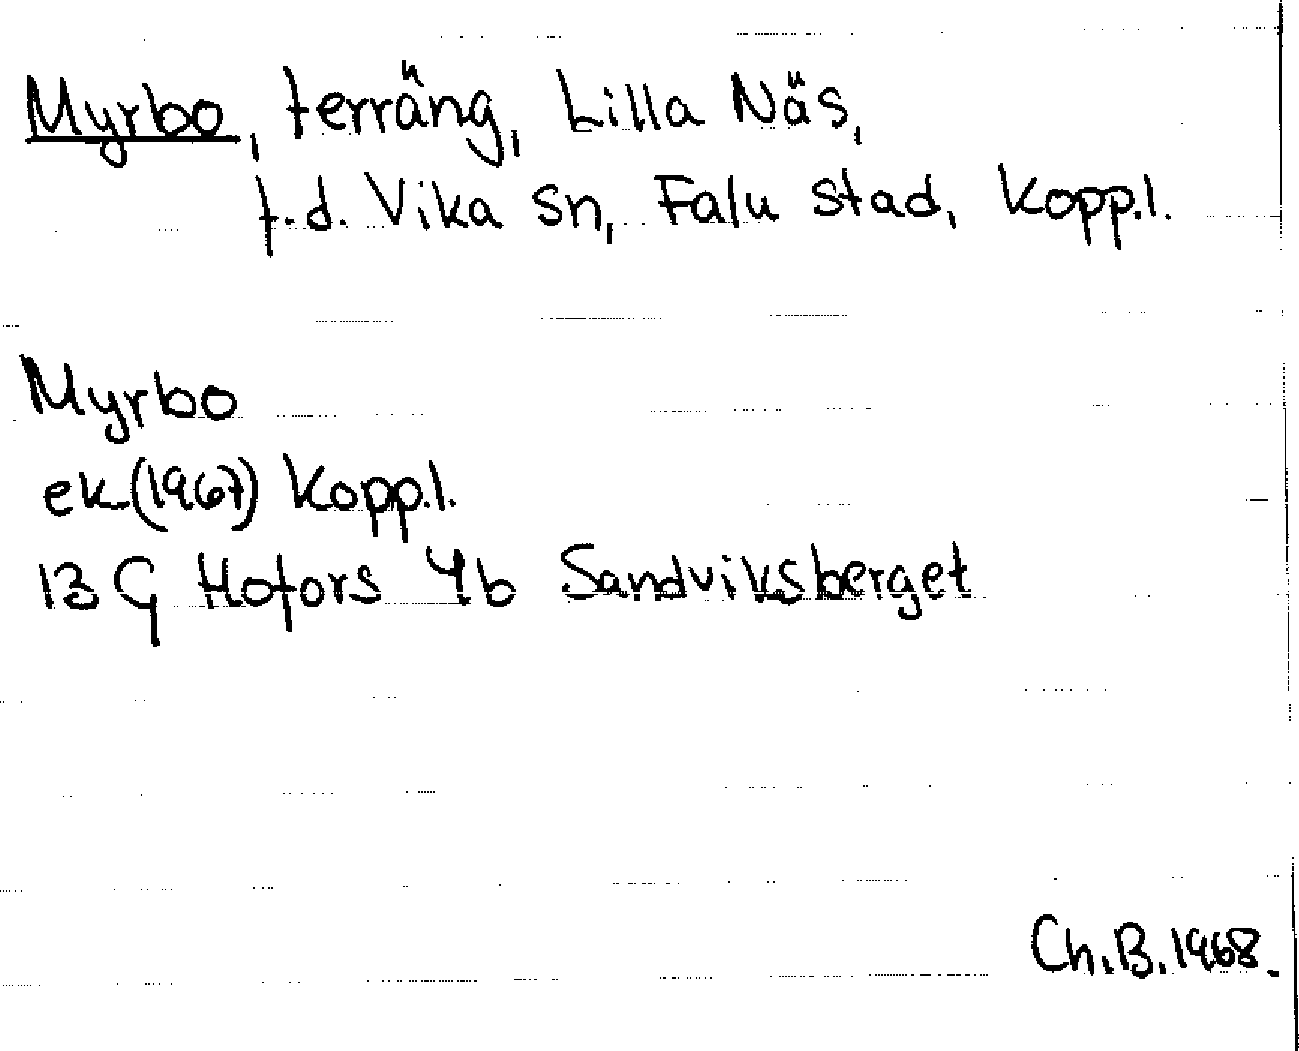 Myrbo, terräng, Lilla Näs,
f.d. Vika sn, Falu stad, Kopp.l.
Myrbo
ek (1967) Kopp.l.
13 G Hofors 4b Sandviksberget
Ch.B.1968.